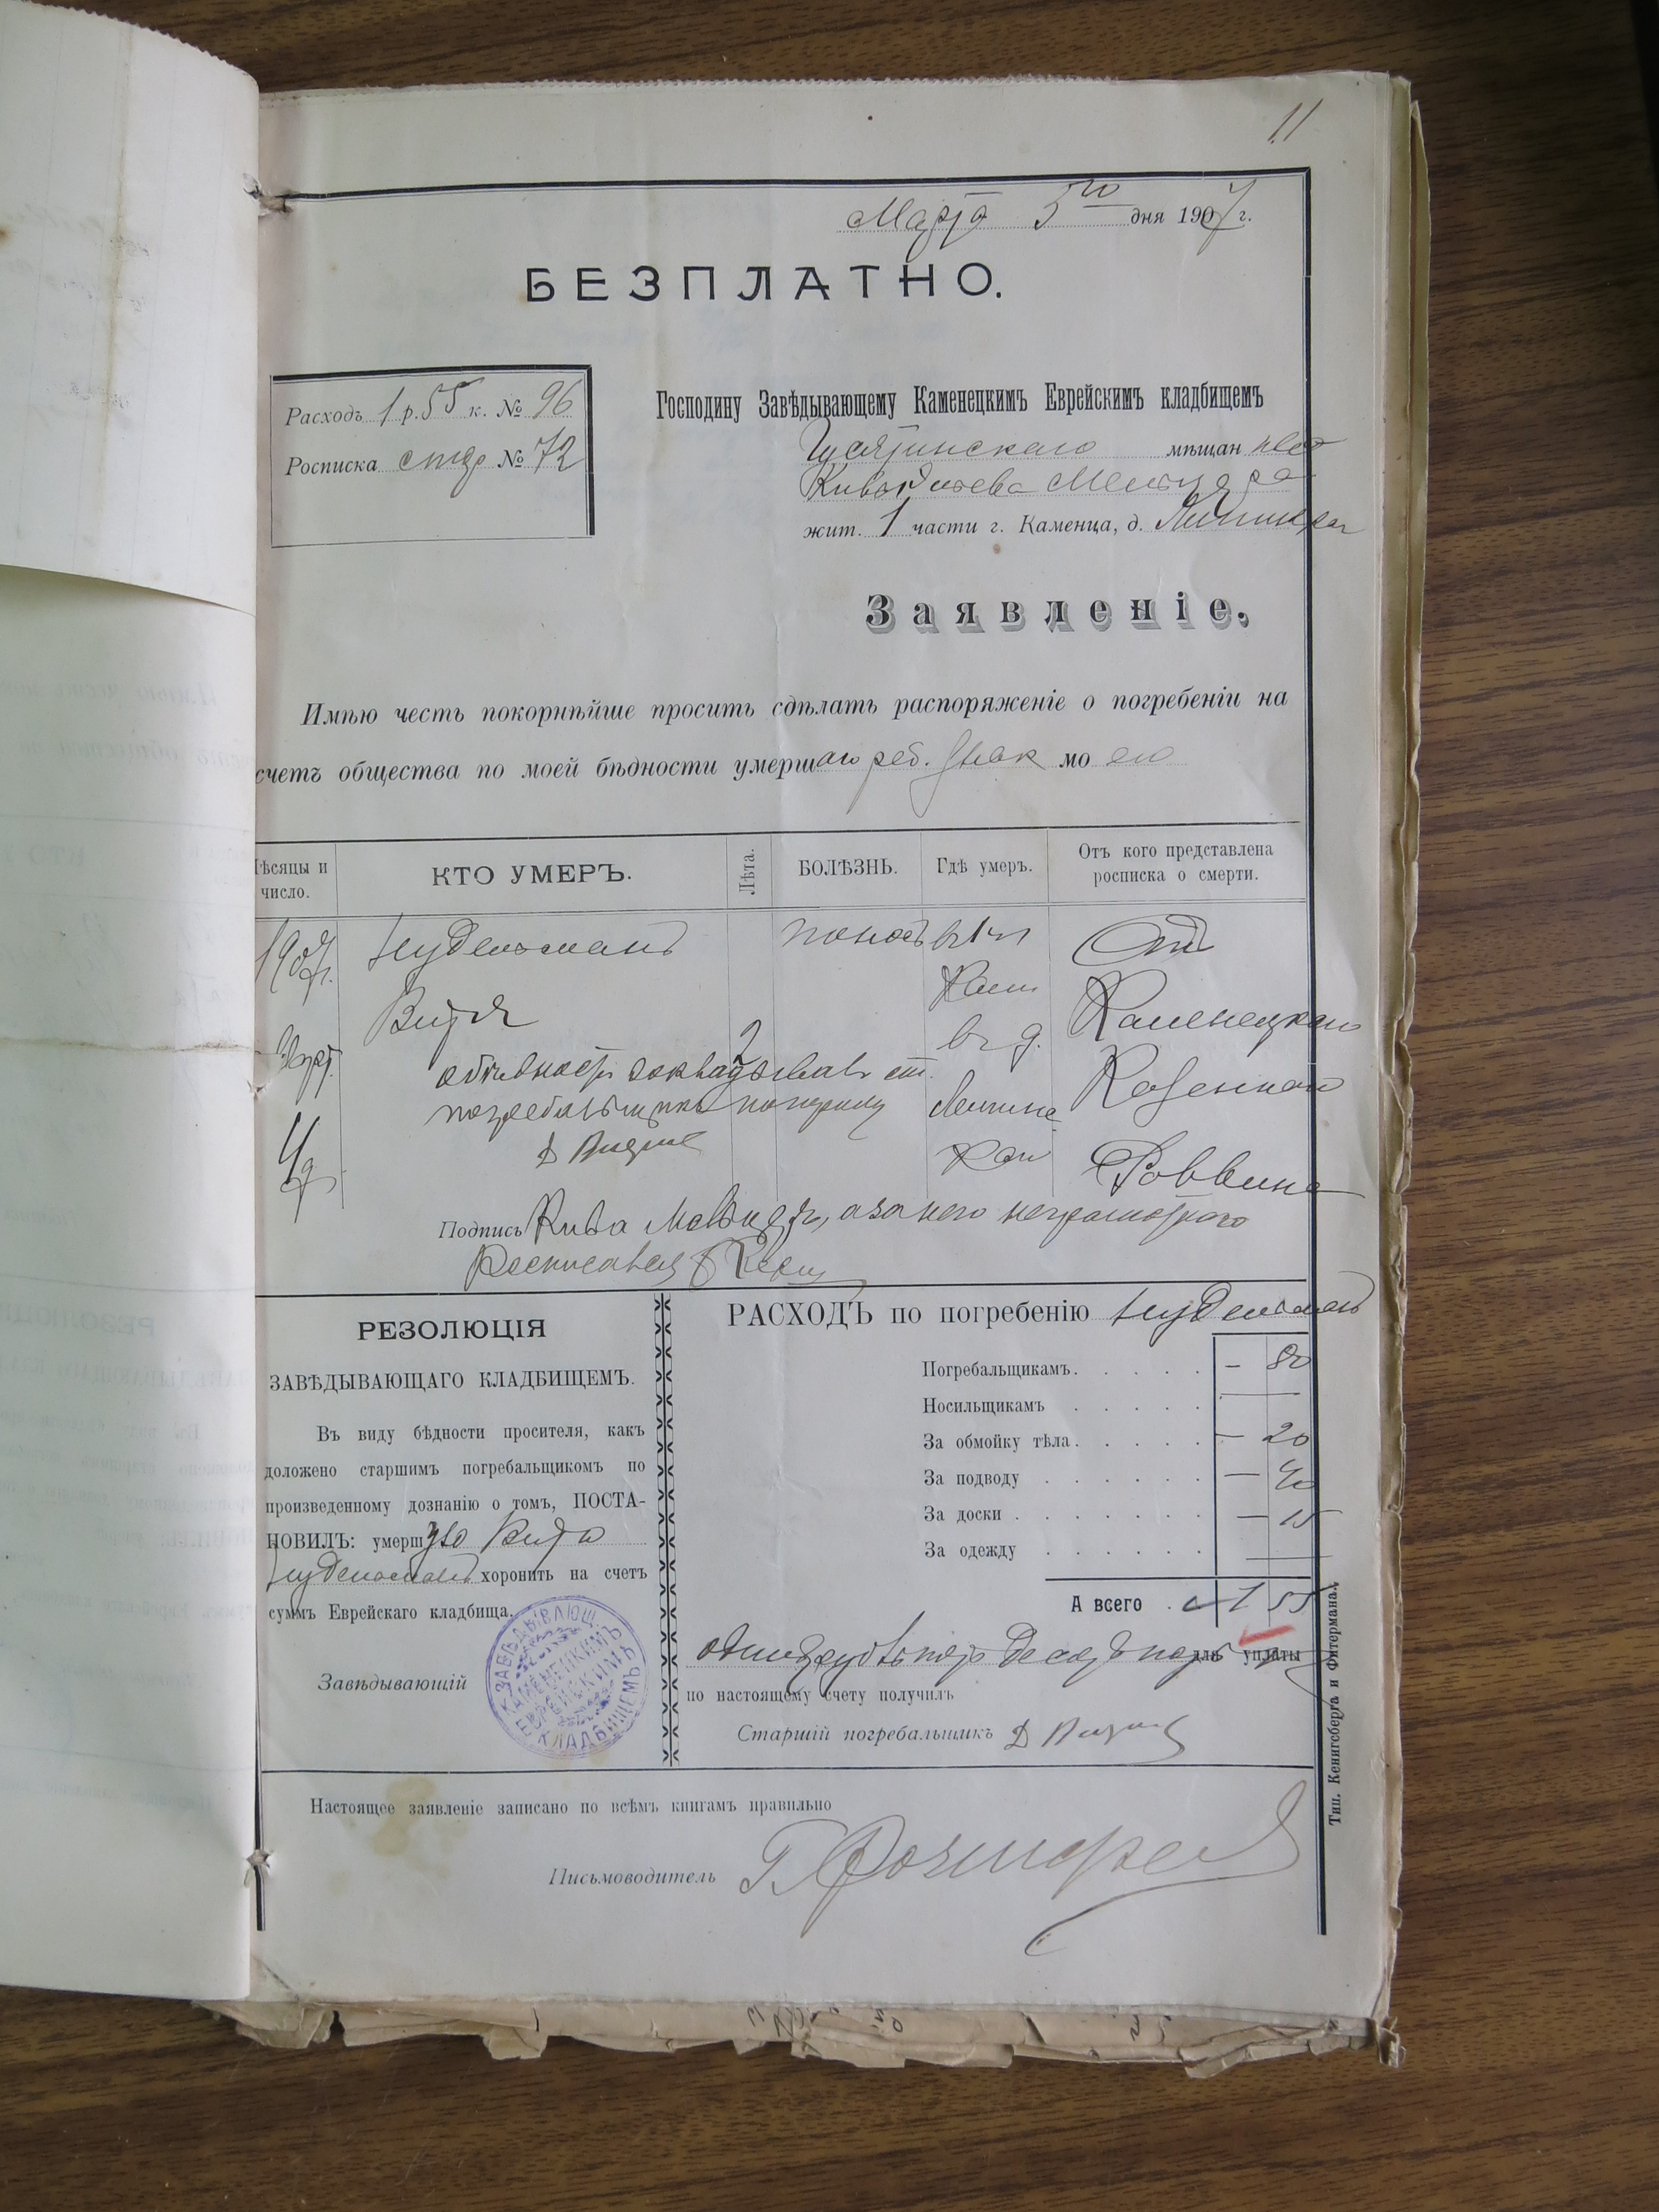 11
Марта 5го дня 1907 г.
БЕЗПЛАТНО.
Расходъ 1 р. 55 к. № 96
Росписка № 72
Господину Завѣдывающему Каменецкимъ Еврейскимъ кладбищемъ
мѣщан
жит. 1 части г. Каменца, д.
Заявленіе.
Имѣю честь покорнѣйше просить сдѣлать распоряженіе о погребеніи на
счетъ общества по моей бѣдности умершаго реб. мо его
Мѣсяцы и число.
КТО УМЕРЪ.
Лѣта.
БОЛѢЗНЬ.
Гдѣ умеръ.
Отъ кого представлена росписка о смерти.
1907г. Нудельманъ поносъ въ 1 ч От
Витя Кам Каменецкаго
2 въ д. Казеннаго
4
погребальщикъ
Кам Раввина
Подпись Кива Мельцеръ, а за него неграмотнаго
Росписався
РЕЗОЛЮЦІЯ
ЗАВѢДЫВАЮЩАГО КЛАДБИЩЕМЪ.
Въ виду бѣдности просителя, какъ
доложено старшимъ погребальщикомъ по
произведенному дознанію о томъ, ПОСТА-
НОВИЛЪ: умершую
Нудельманъ хоронить на счетъ
суммъ Еврейскаго кладбища.
Завѣдывающій
ЗАВѢДЫВАЮЩ. КАМЕНЕЦКИМЪ ЕВРЕЙСКИМЪ КЛАДБИЩЕМЪ
РАСХОДЪ по погребенію Нудельманъ
Погребальщикамъ. . . . . – 80
Носильщикамъ . . . . . —
За обмойку тѣла. . . . . — 20
За подводу . . . . . . — 40
За доски . . . . . . . — 15
За одежду . . . . . . —
А всего . 1 55
одинъ рубль пятьдесятъ пять для уплаты
по настоящему счету получилъ
Старшій погребальшикъ
Настоящее заявленіе записано по всѣмъ книгамъ правильно
Письмоводитель
Тип. Кенигсберга и Фитермана.